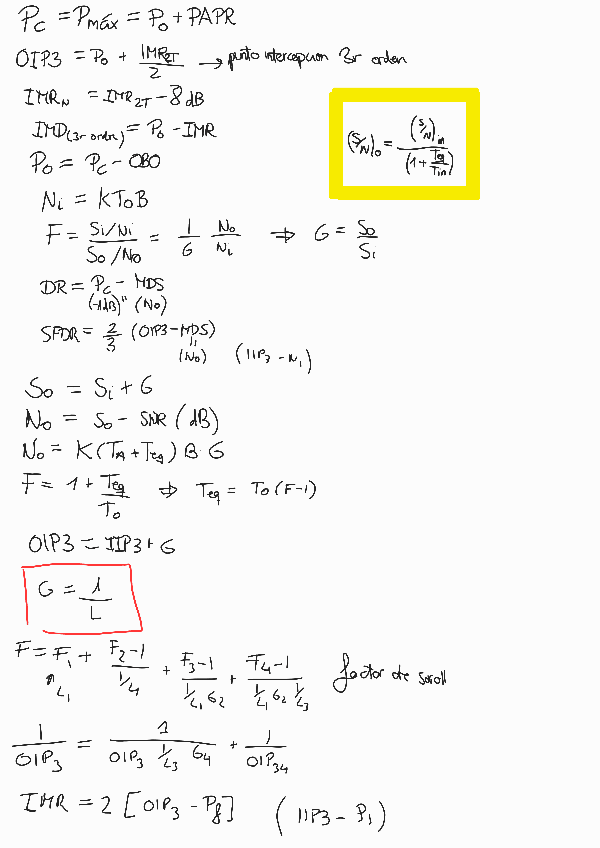 Pc = Pmáx = Po + PAPR
OIP3 = Po + IMR2T/2 → punto intercepcion 3r orden
IMRN = IMR2T - 8 dB
IMD(3r ordre) = Po - IMR
(S/N)o = (S/N)in / (1 + Teq/Tin)
Po = Pc - OBO
Ni = KToB
F = (Si/Ni)/(So/No) = 1/G No/Ni ⇒ G = So/Si
DR = Pc - MDS
(-1dB) " (No)
SFDR = 2/3 (OIP3 - MDS)
" (No) (IIP3 - Ni)
So = Si + G
No = So - SNR (dB)
No = K(TA + Teq) B·G
F = 1 + Teq/To ⇒ Teq = To(F-1)
OIP3 = IIP3 + G
G = 1/L
F = F1 + (F2-1)/(1/L1) + (F3-1)/(1/L1 G2) + (F4-1)/(1/L1 G2 1/L3) factor de soroll
L1
1/OIP3 = 1/(OIP3 1/L3 G4) + 1/OIP34
IMR = 2 [OIP3 - Pf] (IIP3 - Pi)